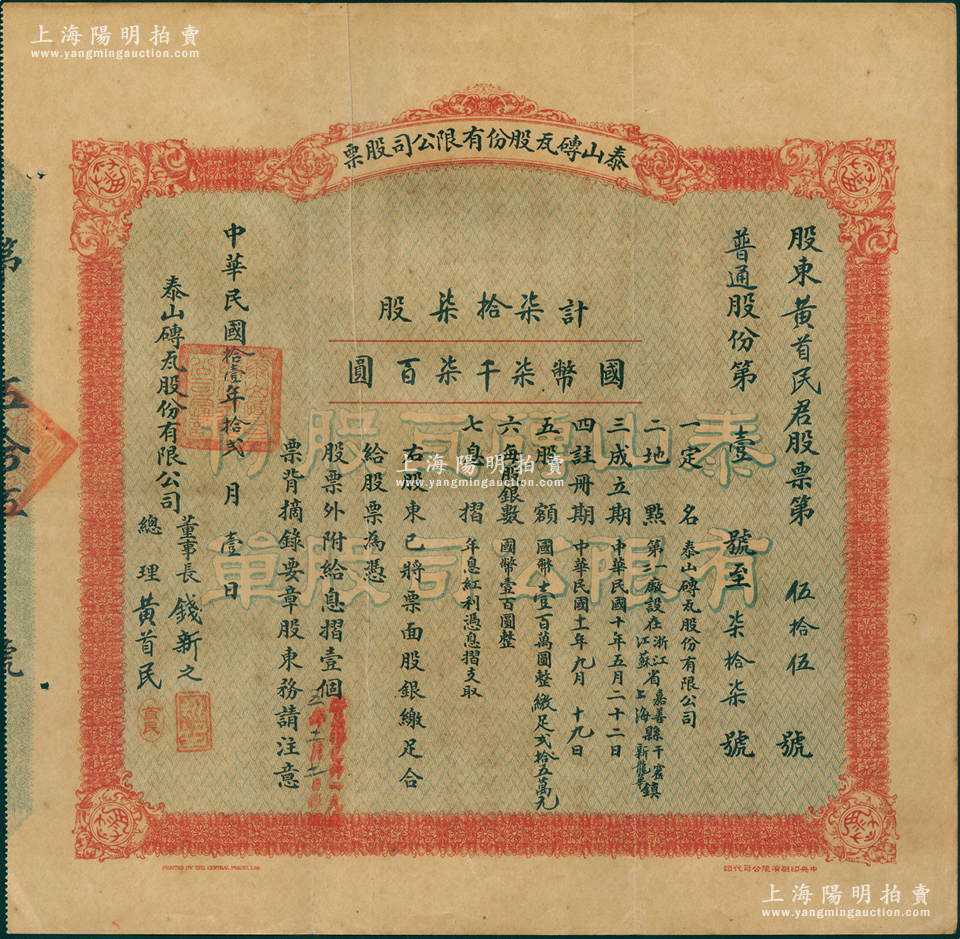 上海陽明拍賣
www.yangmingauction.com
泰山磚瓦股份有限公司股票
股東黃首民君股票第 伍拾伍 號
普通股份第 壹 號至 柒拾柒 號
計柒拾柒股
國幣柒千柒百圓
一定名 泰山磚瓦股份有限公司
二地點 第一廠設在浙江省嘉善縣干窰鎮
第三廠設在江蘇省上海新龍華
三成立期 中華民國十年五月二十二日
四註冊期 中華民國十一年九月十九日
五股額 國幣壹百萬圓整繳足弍拾五萬元
六每股銀數 國幣壹百圓整
七息摺 年息紅利憑息摺支取
右股東已將票面股銀繳足合
給股票為憑
股票外附給息摺壹個
票背摘錄要章股東務請注意
中華民國拾壹年拾弍月壹日
泰山磚瓦股份有限公司
董事長 錢新之
總理 黃首民
泰山磚瓦股份
有限公司股單
第
五拾五
號
上海陽明拍賣
www.yangmingauction.com
PRINTED BY THE CENTRAL PRINT. LTD.
中央印刷有限公司代印
上海陽明拍賣
www.yangmingauction.com